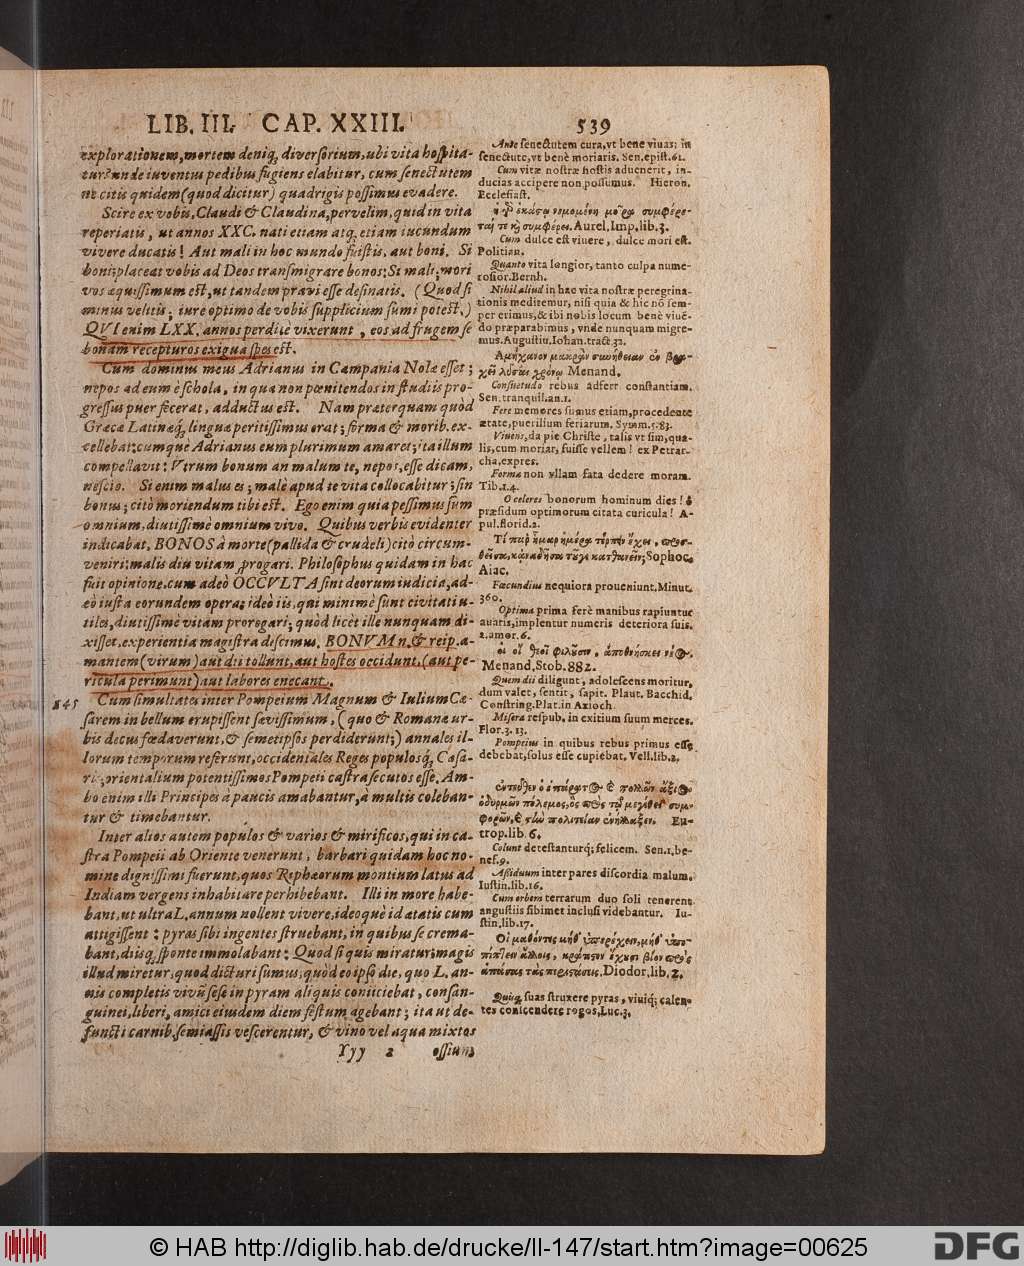 LIB. III. CAP. XXIII. 539
explorationem, mortem deniq; diversorium, ubi vita hospita-
tur? unde iuventus pedibus fugiens elabitur, cum senectutem
ne citis quidem (quod dicitur) quadrigis possimus evadere.
Scire ex vobis, Claudi & Claudina, pervelim, quid in vita
reperiatis, ut annos XXC. nati etiam atq; etiam iucundum
vivere ducatis! Aut mali in hoc mundo fuistis, aut boni. Si
boni; placeat vobis ad Deos transmigrare bonos: Si mali; mori
vos æquissimum est, ut tandem pravi esse desinatis. (Quod si
minus velitis; iure optimo de vobis supplicium sumi potest.)
QVI enim LXX. annos perditè vixerunt, eos ad frugem se
bonam recepturos exigua spes est.
Cum dominus meus Adrianus in Campania Nolæ esset;
nepos ad eum è schola, in qua non pœnitendos in studiis pro-
gressus puer fecerat, adductus est. Nam præterquam quòd
Græcæ Latinæq; linguæ peritissimus erat; forma & morib. ex-
cellebat: cumquè Adrianus eum plurimum amaret; ita illum
compellavit: Vtrum bonum an malum te, nepos, esse dicam,
nescio. Si enim malus es; malè apud te vita collocabitur; sin
bonus; citò moriendum tibi est. Ego enim quia pessimus sum
omnium, diutissimè omnium vivo. Quibus verbis evidenter
indicabat, BONOS à morte (pallida & crudeli) citò circum-
veniri; malis diu vitam progari. Philosophus quidam in hac
fuit opinione, cum adeò OCCVLTA sint deorum iudicia, ad-
eò iusta eorundem opera; ideò iis, qui minimè sunt civitati u-
tiles, diutissimè vitam prorogari; quòd licèt ille nunquam di-
xisset, experientia magistra discimus. BONVM n. & reip. a-
mantem (virum) aut dii tollunt, aut hostes occidunt, (aut pe-
ricula perimunt) aut labores enecant.
845 Cum simultates inter Pompeium Magnum & Iulium Cæ-
sarem in bellum erupissent sævissimum, (quo & Romanæ ur-
bis decus fœdaverunt, & semetipsos perdiderunt;) annales il-
lorum temporum referunt, occidentales Reges populosq; Cæsa-
ris; orientalium potentissimos Pompeii castra secutos esse. Am-
bo enim illi Principes à paucis amabantur, à multis coleban-
tur & timebantur.
Inter alios autem populos & varios & mirificos, qui in ca-
stra Pompeii ab Oriente venerunt, barbari quidam hoc no-
mine dignissimi fuerunt, quos Riphæorum montium latus ad
Indiam vergens inhabitare perhibebant. Illi in more habe-
bant, ut ultra L. annum nollent vivere, ideoquè id ætatis cum
attigissent: pyras sibi ingentes struebant, in quibus se crema-
bant, diisq; sponte immolabant: Quod si quis miratur; magis
illud miretur, quod dicturi sumus; quòd eo ipso die, quo L. an-
nis completis vivũ sese in pyram aliquis coniiciebat, consan-
guinei, liberi, amici eiusdem diem festum agebant; ita ut de-
functi carnib. semiassis vescerentur, & vino vel aqua mixtos
Yyy 2 ossium
Ante senectutem cura, vt bene viuas: in
senectute, vt benè moriaris. Sen. epist. 61.
Cum vitæ nostræ hostis aduenerit, in-
ducias accipere non possumus. Hieron.
Ecclesiast.
Aurel. Imp. lib. 3.
Cum dulce est viuere, dulce mori est.
Politian.
Quanto vita longior, tanto culpa nume-
rosior. Bernh.
Nihil aliud in hac vitæ nostræ peregrina-
tionis meditemur, nisi quia & hic nõ sem-
per erimus, & ibi nobis locum benè viuẽ-
do præparabimus, vnde nunquam migre-
mus. Augustiu. Iohan. tract. 32.
Ἀμήχανον μακρὰν συνήθειαν ἐν βρα-
χεῖ λῦσαι χρόνῳ Menand.
Consuetudo rebus adfert constantiam.
Sen. tranquil. an. 1.
Fere memores sumus etiam, procedente
ætate, puerilium feriarum. Symm. 5. 83.
Viuens, da pie Christe, talis vt sim, qua-
lis, cum moriar, fuisse vellem! ex Petrar-
cha, expres.
Forma non vllam fata dedere moram.
Tib. 1. 4.
O celeres bonorum hominum dies! ô
præsidum optimorum citata curicula! A-
pul. florid. 2.
Τί παρ' ἦμαρ ἡμέρα τέρπειν ἔχει, προσ-
θεῖσα, κἀναθεῖσα τοῦγε κατθανεῖν; Sophoc.
Aiac.
Fœcundius nequiora proueniunt. Minut.
360.
Optima prima ferè manibus rapiuntur
auaris, implentur numeris deteriora suis.
2. amor. 6.
Menand. Stob. 882.
Quem dii diligunt, adolescens moritur,
dum valet, sentit, sapit. Plaut. Bacchid.
Confring. Plat. in Axioch.
Misera respub. in exitium suum merces.
Flor. 3. 13.
Pompeius in quibus rebus primus esse
debebat, solus esse cupiebat. Vell. lib. 2.
Eu-
trop. lib. 6.
Colunt detestanturq; felicem. Sen. 1. be-
nef. 9.
Assiduum inter pares discordia malum.
Iustin. lib. 16.
Cum orbem terrarum duo soli tenerent
angustiis sibimet inclusi videbantur. Iu-
stin. lib. 17.
Diodor. lib. 2.
Quiq; suas struxere pyras, viuiq; calen-
tes conscendere rogos. Luc. 3.
© HAB http://diglib.hab.de/drucke/ll-147/start.htm?image=00625
DFG